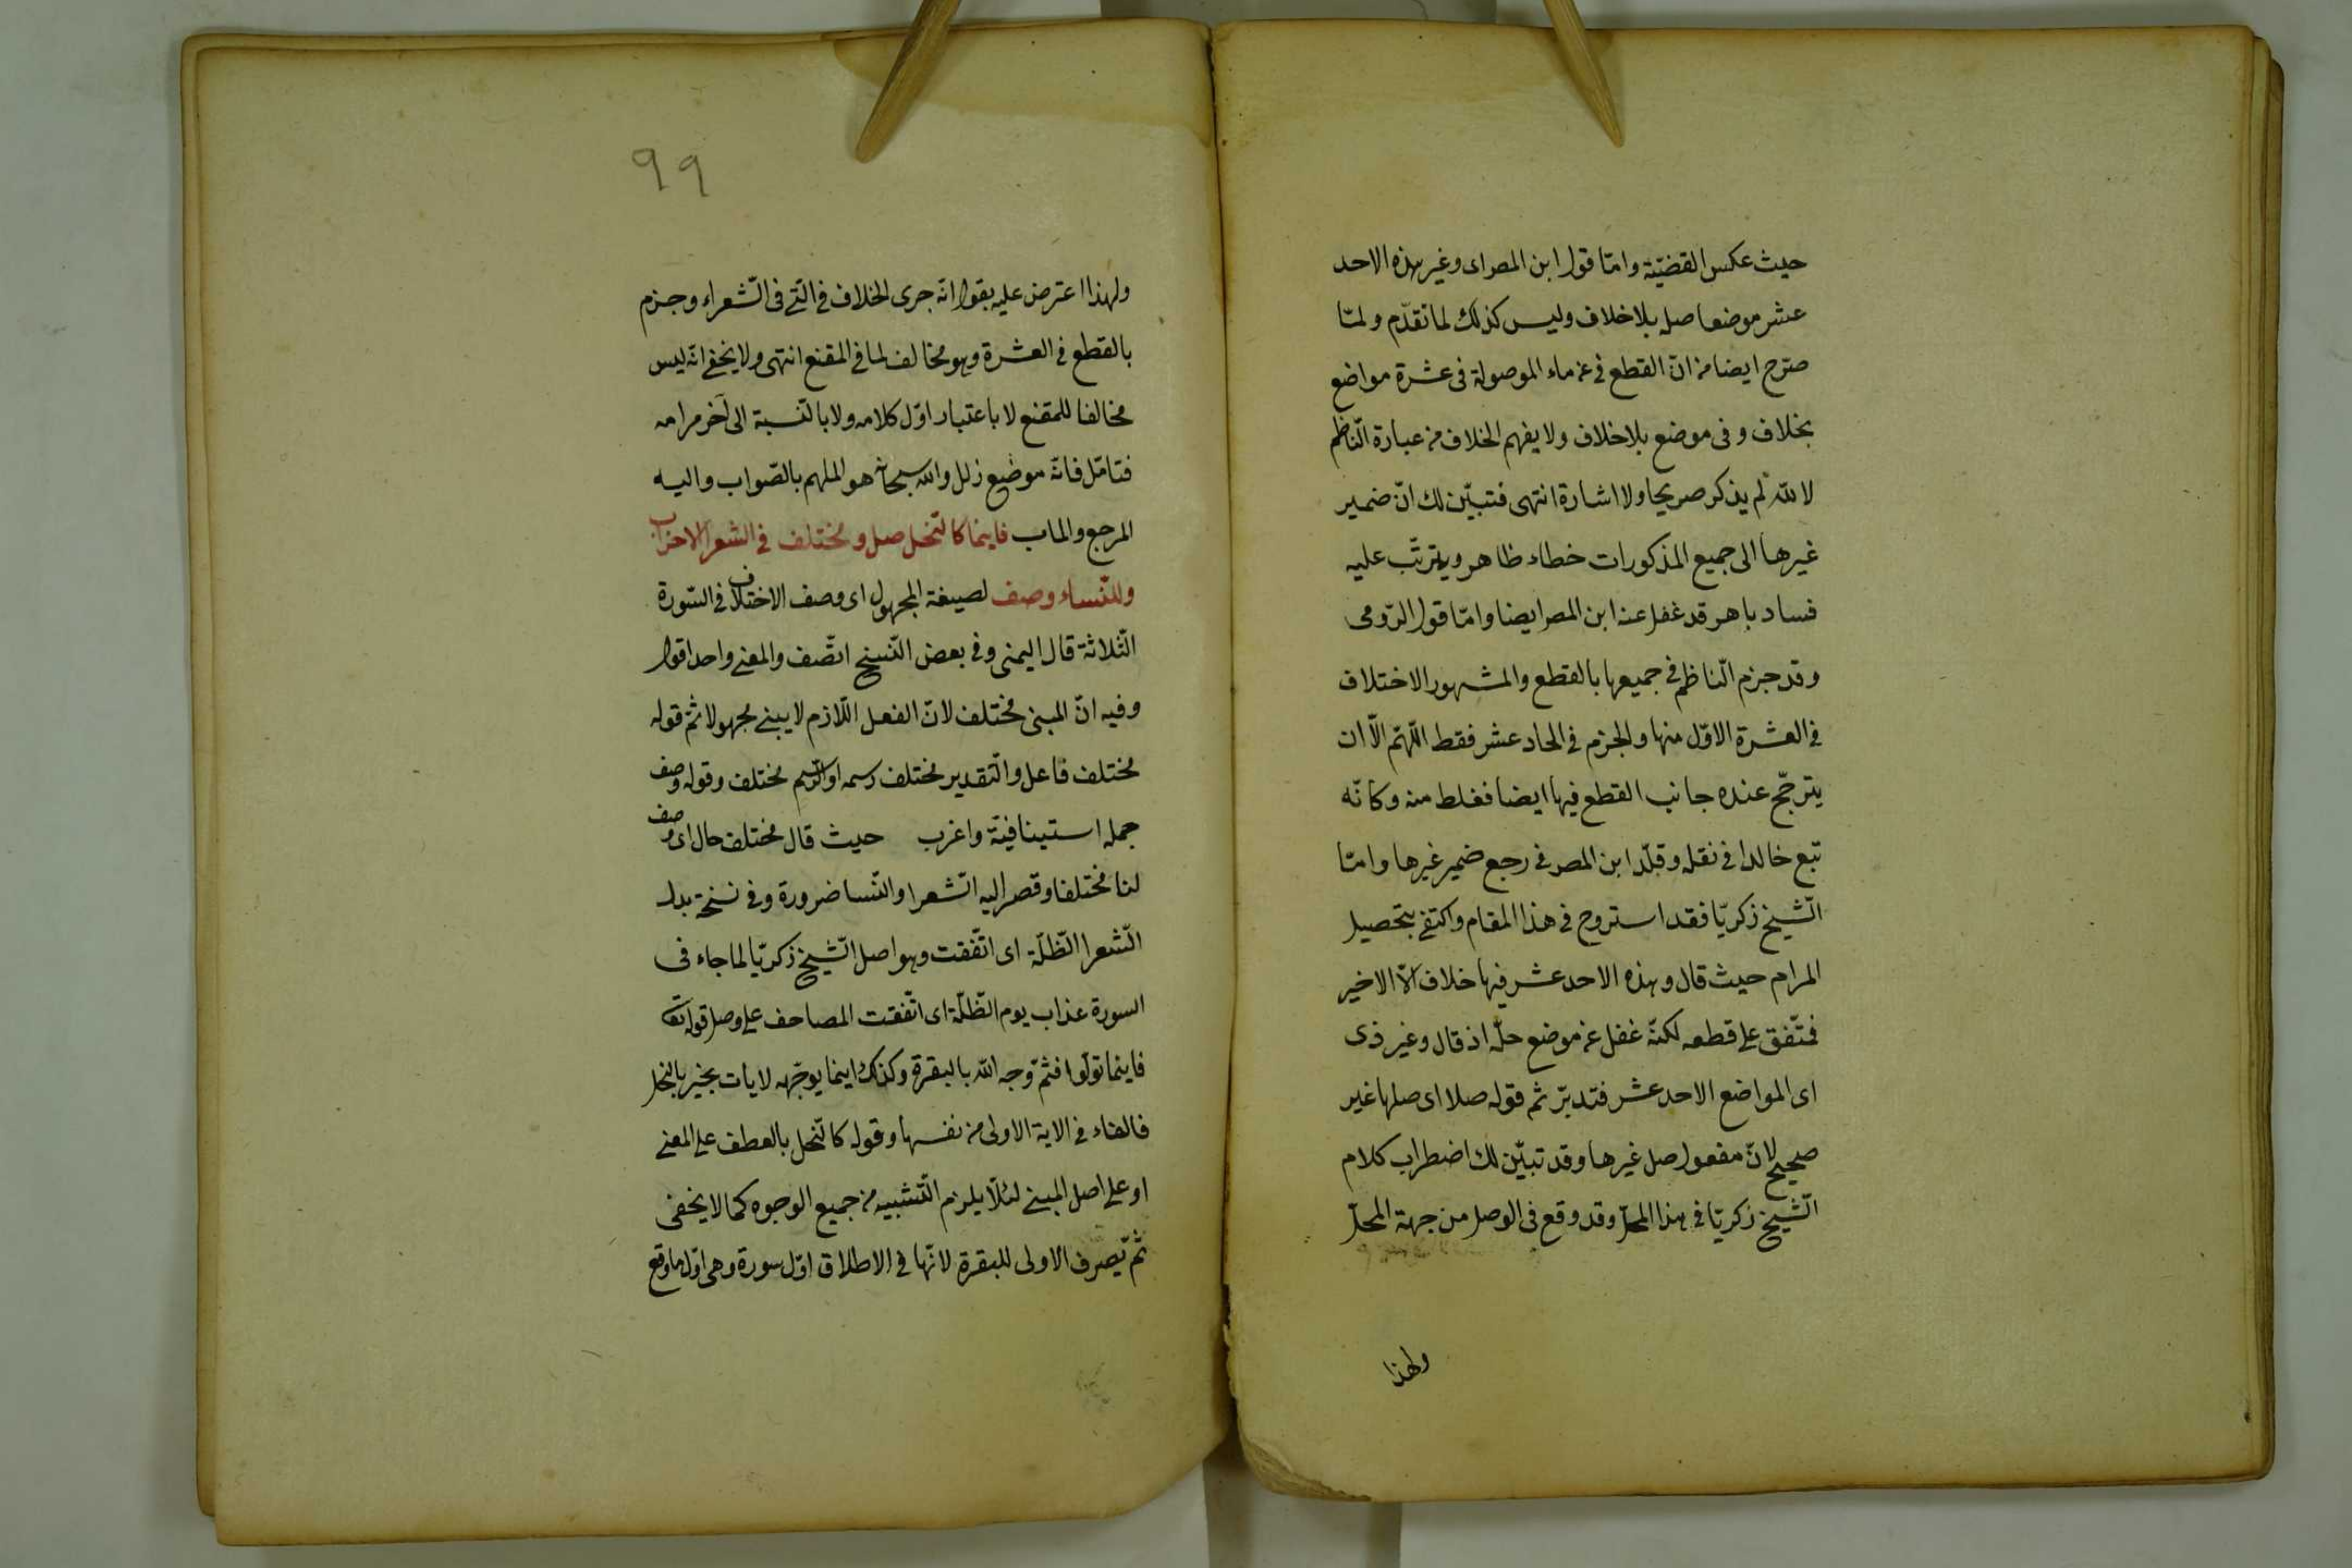 حيث عكس القضيّة وامّا قول ابن المص اى وغير هذه الاحد
عشر موضعا صله بلاخلاف وليس كذلك لما تقدّم ولمّا
صرّح ايضا من انّ القطع فى عن ماء الموصولة فى عشرة مواضع
بخلاف وفى موضع بلاخلاف ولا يفهم الخلاف من عبارة النّاظم
لم يذكر صريحا ولا اشارة انتهى فتبيّن لك انّ ضمير
غيرها الى جميع المذكورات خطاء ظاهر ويترتّب عليه
فساد باهر قد غفل عنه ابن المصر ايضا وامّا قول الرّومى
وقد جزم النّاظم فى جميعها بالقطع والمشهور الاختلاف
فى العشرة الاوّل منها والجزم فى الحاد عشر فقط اللّهمّ الّا ان
يترجّح عنده جانب القطع فيها ايضا فغلط منه وكانّه
تبع خالدا فى نقله وقلّد ابن المصر فى رجع ضمير غيرها وامّا
الشّيخ زكريّا فقد استروح فى هذا المقام واكتفى بتحصيل
المرام حيث قال وهذه الاحد عشر فيها خلاف الّا الاخير
فمتّفق على قطعه لكنّه غفل عن موضع حلّه اذ قال وغير ذى
اى المواضع الاحد عشر فتدبّر ثم قوله صلا اى صلها غير
صحيح لانّ مفعول صل غيرها وقد تبيّن لك اضطراب كلام
الشّيخ زكريّا فى هذا المحلّ وقد وقع فى الوصل من جهة المحلّ
ولهذا
٩٩
ولهذا اعترض عليه بقوله انّه جرى الخلاف فى الّتى فى الشّعراء وجزم
بالقطع فى العشرة وهو مخالف لما فى المقنع انتهى ولا يخفى انّه ليس
مخالفا للمقنع لا باعتبار اوّل كلامه ولا بالنّسبة الى آخر مرامه
فتامّل فانّه موضع زلل والله سبحانه هو الملهم بالصّواب واليه
المرجع والماب فاينما كالنّحل صل ومختلف فى الشعر الاحزاب
وللنّساء وصف لصيغة المجهول اى وصف الاختلاف فى السّورة
الثّلاثة قال اليمنى وفى بعض النّسخ اتّصف والمعنى واحد اقول
وفيه انّ المبنى مختلف لانّ الفعل اللّازم لا يبنى مجهولا ثمّ قوله
مختلف فاعل والتّقدير مختلف رسمه او الرّسم مختلف وقوله وصف
جمله استينافيّة واغرب حيث قال مختلف حال اى وصف
لنا مختلفا وقصر اليه الشّعرا والنّسا ضرورة وفى نسخة بدل
الشّعرا الظّلّة اى اتّفقت وهو اصل الشّيخ زكريّا لما جاء فى
السورة عذاب يوم الظّلّة اى اتّفقت المصاحف على وصل قوله تعا
فاينما تولّوا فثمّ وجه الله بالبقرة وكذلك اينما يوجّهه لا يات بخير بالنحل
فالفاء فى الاية الاولى من نفسها وقوله كالنّحل بالعطف على المعنى
او على اصل المبنى لئلّا يلزم التّشبيه من جميع الوجوه كما لا يخفى
ثمّ يصرف الاولى للبقرة لانّها فى الاطلاق اوّل سورة وهى اوّل ما وقع